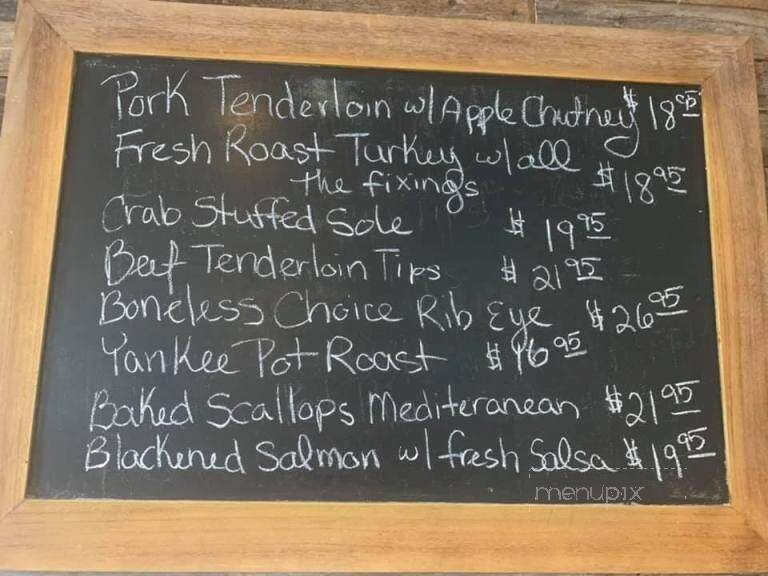 Pork Tenderloin w/Apple Chutney $18.95
Fresh Roast Turkey w/all
the fixings $18.95
Crab Stuffed Sole $19.95
Beef Tenderloin Tips $21.95
Boneless Choice Rib Eye $26.95
Yankee Pot Roast $16.95
Baked Scallops Mediteranean $21.95
Blackened Salmon w/ fresh Salsa $19.95
menupix